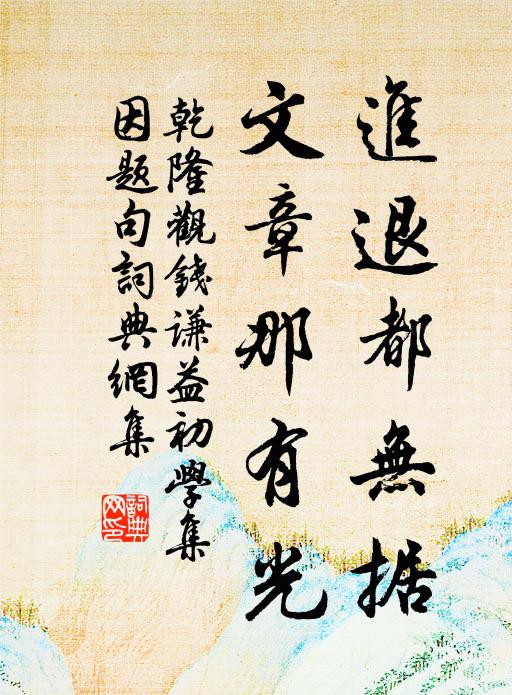 進退都無据
文章那有光
乾隆觀錢謙益初學集
因題句詞典網集
詞典
网印